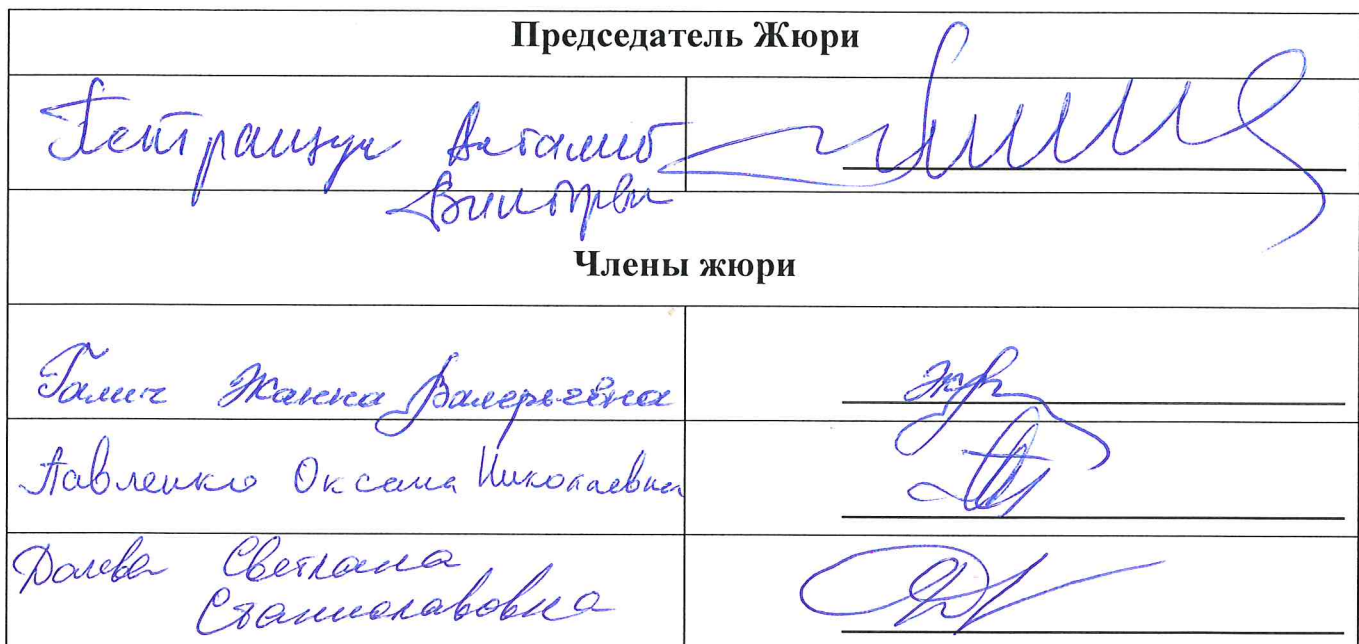 Председатель Жюри
Викторович
Члены жюри
Галич Жанна Валерьевна
Павленко Оксана Николаевна
Светлана
Станиславовна